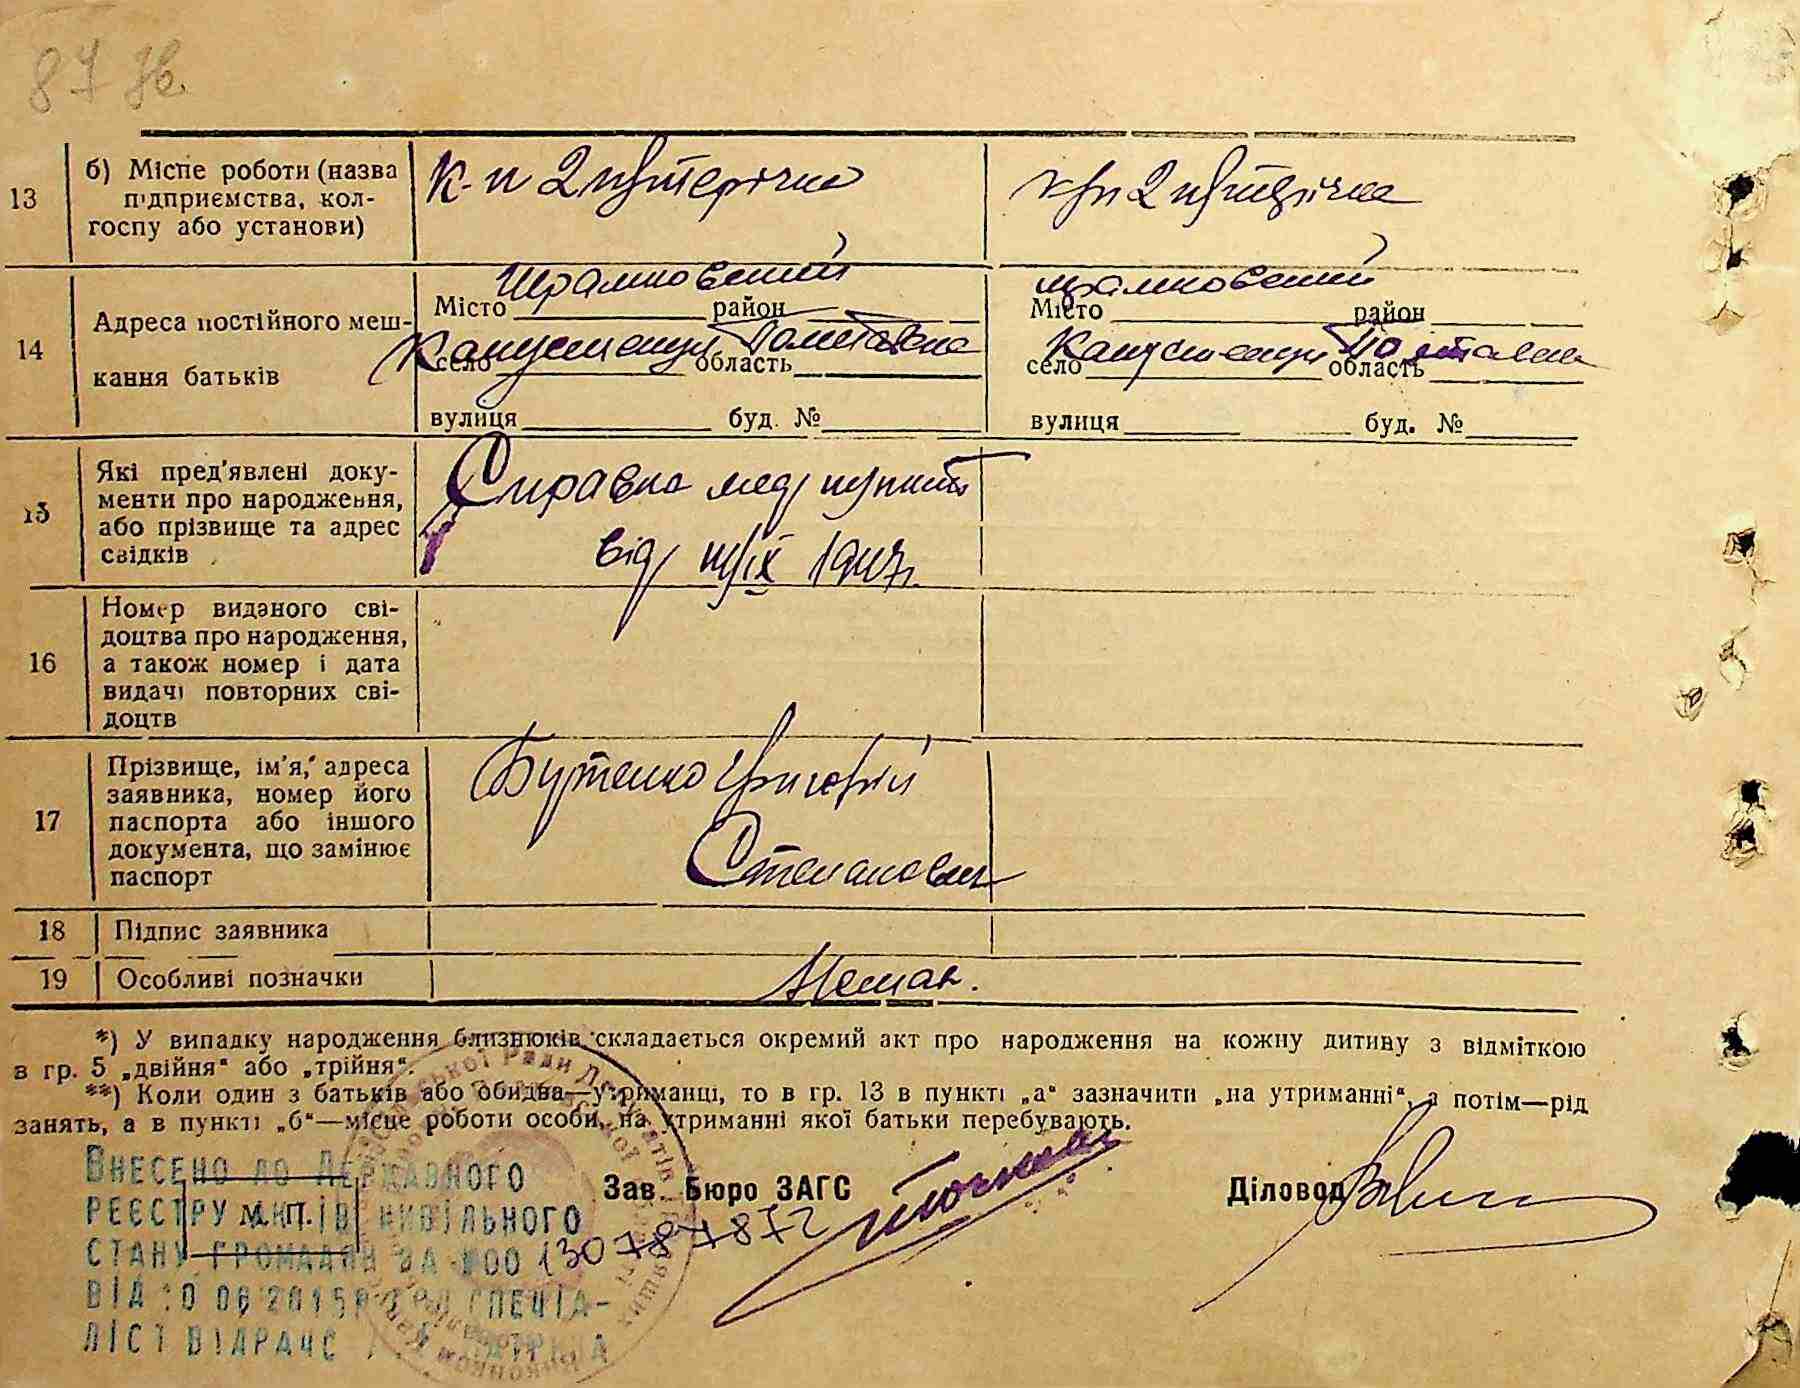 87 зв.
13 б) Місце роботи (назва підприємства, колгоспу або установи)
к-п 2 пятерічка
к-п 2 пятерічка
14 Адреса постійного мешкання батьків
Місто район Шрамковський
село Капустенци область Полтавска
вулиця буд. №
Місто район Шрамковський
село Капустенци область Полтавска
вулиця буд. №
15 Які пред'явлені документи про народження, або прізвище та адрес свідків
Справка мед пункта
від ІХ 1947 г.
16 Номер виданого свідоцтва про народження, а також номер і дата видачі повторних свідоцтв
17 Прізвище, ім'я, адреса заявника, номер його паспорта або іншого документа, що замінює паспорт
Бутенко Григорій
Степанович
18 Підпис заявника
19 Особливі позначки
Немає.
*) У випадку народження близнюків складається окремий акт про народження на кожну дитину з відміткою
в гр. 5 „двійня“ або „трійня“.
**) Коли один з батьків або обидва—утриманці, то в гр. 13 в пункті „а“ зазначити „на утриманні“, а потім—рід
занять, а в пункті „б“—місце роботи особи, на утриманні якої батьки перебувають.
Зав. Бюро ЗАГС
Діловод
М.П.
ВНЕСЕНО ДО ДЕРЖАВНОГО
РЕЄСТРУ АКТІВ ЦИВІЛЬНОГО
СТАНУ ГРОМАДЯН ЗА №00130787872
ВІД 10 06 2015Р СПЕЦІА-
ЛІСТ ВІДРАЦС